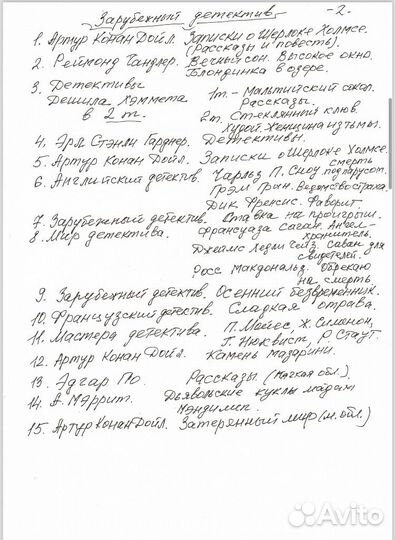 Зарубежный детектив -2-
1. Артур Конан Дойл. Записки о Шерлоке Холмсе.
(Рассказы и повесть).
2. Реймонд Чандлер. Вечный сон. Высокое окно.
Блондинка в озере.
3. Детективы 1т. - Мальтийский сокол.
Дешила Хэммета Рассказы.
в 2 т. 2т. Стеклянный ключ
Худой. Женщина из тьмы.
4. Эрл Стэнли Гарднер. Детективы.
5. Артур Конан Дойл. Записки о Шерлоке Холмсе.
6. Английский детектив. Чарльз П. Сноу смерть под парусом.
Грэм Грин. Ведомство страха.
Дик Френсис. Фаворит.
7. Зарубежный детектив. Ставка на проигрыш.
8. Мир детектива. Француаза Саган. Ангел-
хранитель.
Джеймс Хедли Чейз. Саван для
свидетелей.
Росс Макдональд. Обрекаю
на смерть.
9. Зарубежный детектив. Осенний безвременник.
10. Французский детектив. Сладкая отрава.
11. Мастера детектива. П. Мойес, Ж. Сименон,
Г. Нюквист, Р. Стаут.
12. Артур Конан Дойл. Камень мазарини.
13. Эдгар По. Рассказы. (Мягкая обл.).
14. А. Мэррит. Дьявольские куклы мадам
Мэндилип.
15. Артур Конан Дойл. Затерянный мир (м. обл.)
Avito